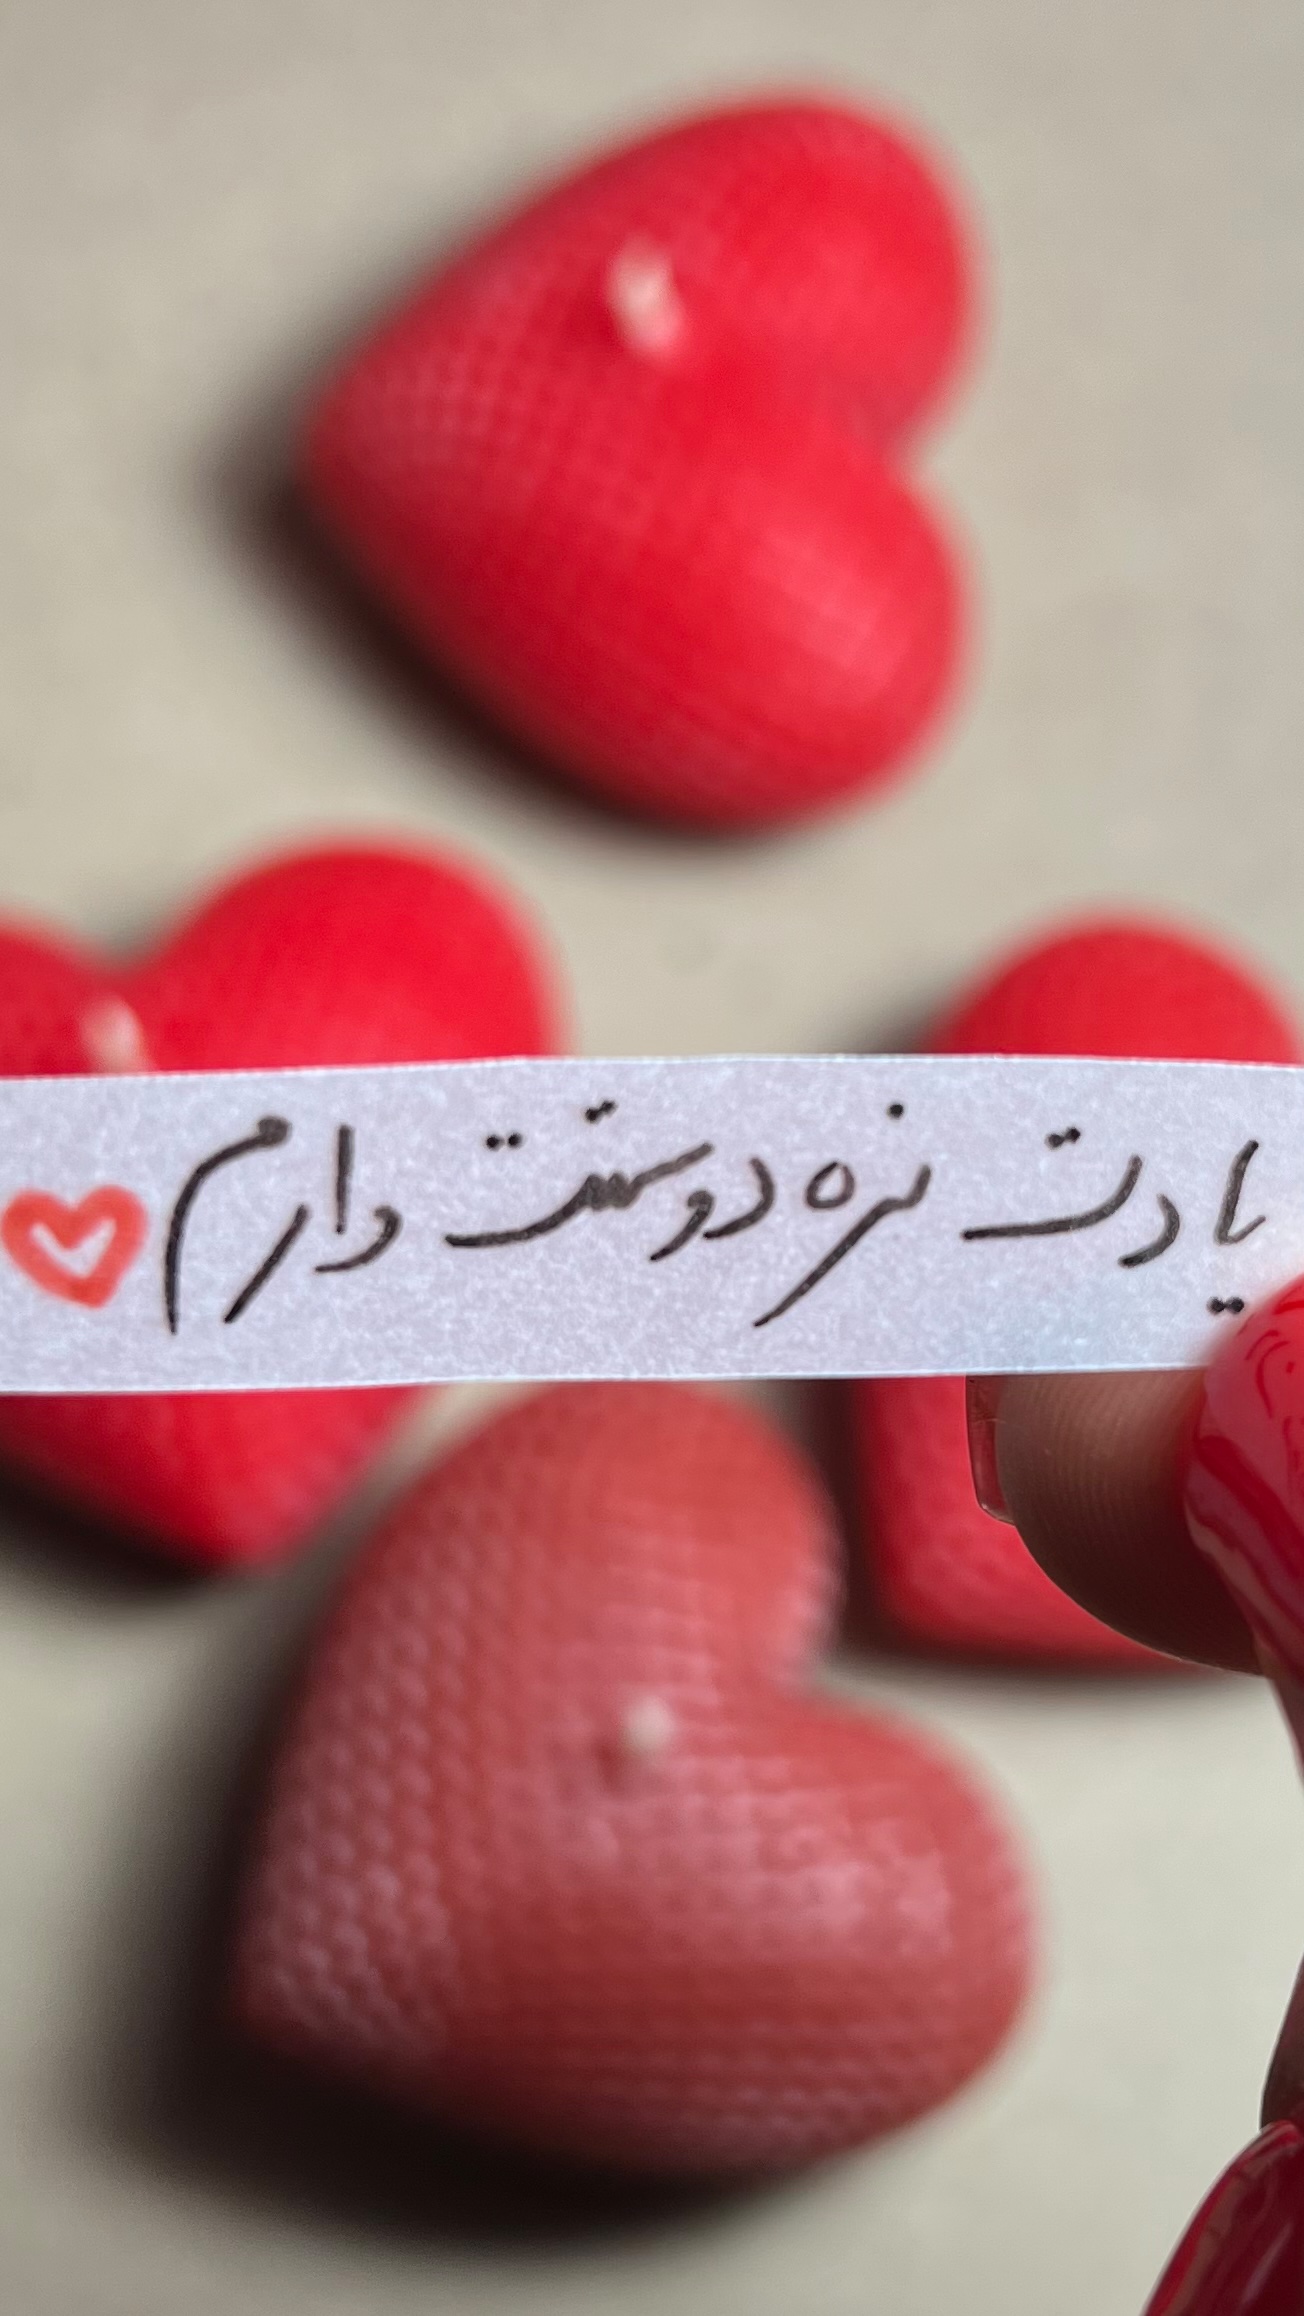 یادت نره دوستت دارم